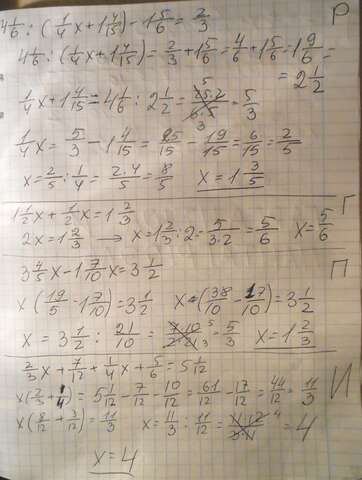 4 1/6 : (1/4 x + 1 4/15) - 1 5/6 = 2/3 Р
4 1/6 : (1/4 x + 1 4/15) = 2/3 + 1 5/6 = 4/6 + 1 5/6 = 1 9/6 =
= 2 1/2
1/4 x + 1 4/15 = 4 1/6 : 2 1/2 = 25·2/6·5 = 5/3
1/4 x = 5/3 - 1 4/15 = 25/15 - 19/15 = 6/15 = 2/5
x = 2/5 : 1/4 = 2·4/5 = 8/5 x = 1 3/5
1 1/2 x + 1/2 x = 1 2/3 Г
2x = 1 2/3 → x = 1 2/3 : 2 = 5/3·2 = 5/6 x = 5/6
3 4/5 x - 1 7/10 x = 3 1/2 П
x (19/5 - 1 7/10) = 3 1/2 x (38/10 - 17/10) = 3 1/2
x = 3 1/2 : 21/10 = 7·10/2·21 = 5/3 x = 1 2/3
2/3 x + 7/12 + 1/4 x + 5/6 = 5 1/12 И
x (2/3 + 1/4) = 5 1/12 - 7/12 - 10/12 = 61/12 - 17/12 = 44/12 = 11/3
x (8/12 + 3/12) = 11/3 x = 11/3 : 11/12 = 11·12/3·11 = 4
x = 4